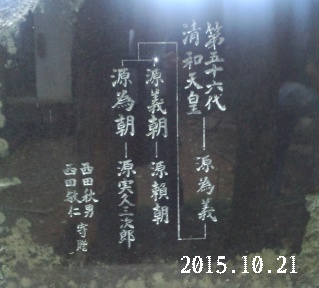 第五十六代
清和天皇——源為義
源義朝—源頼朝
源為朝—源実久三次郎
西田秋男
西田敬仁 守貽
2015.10.21